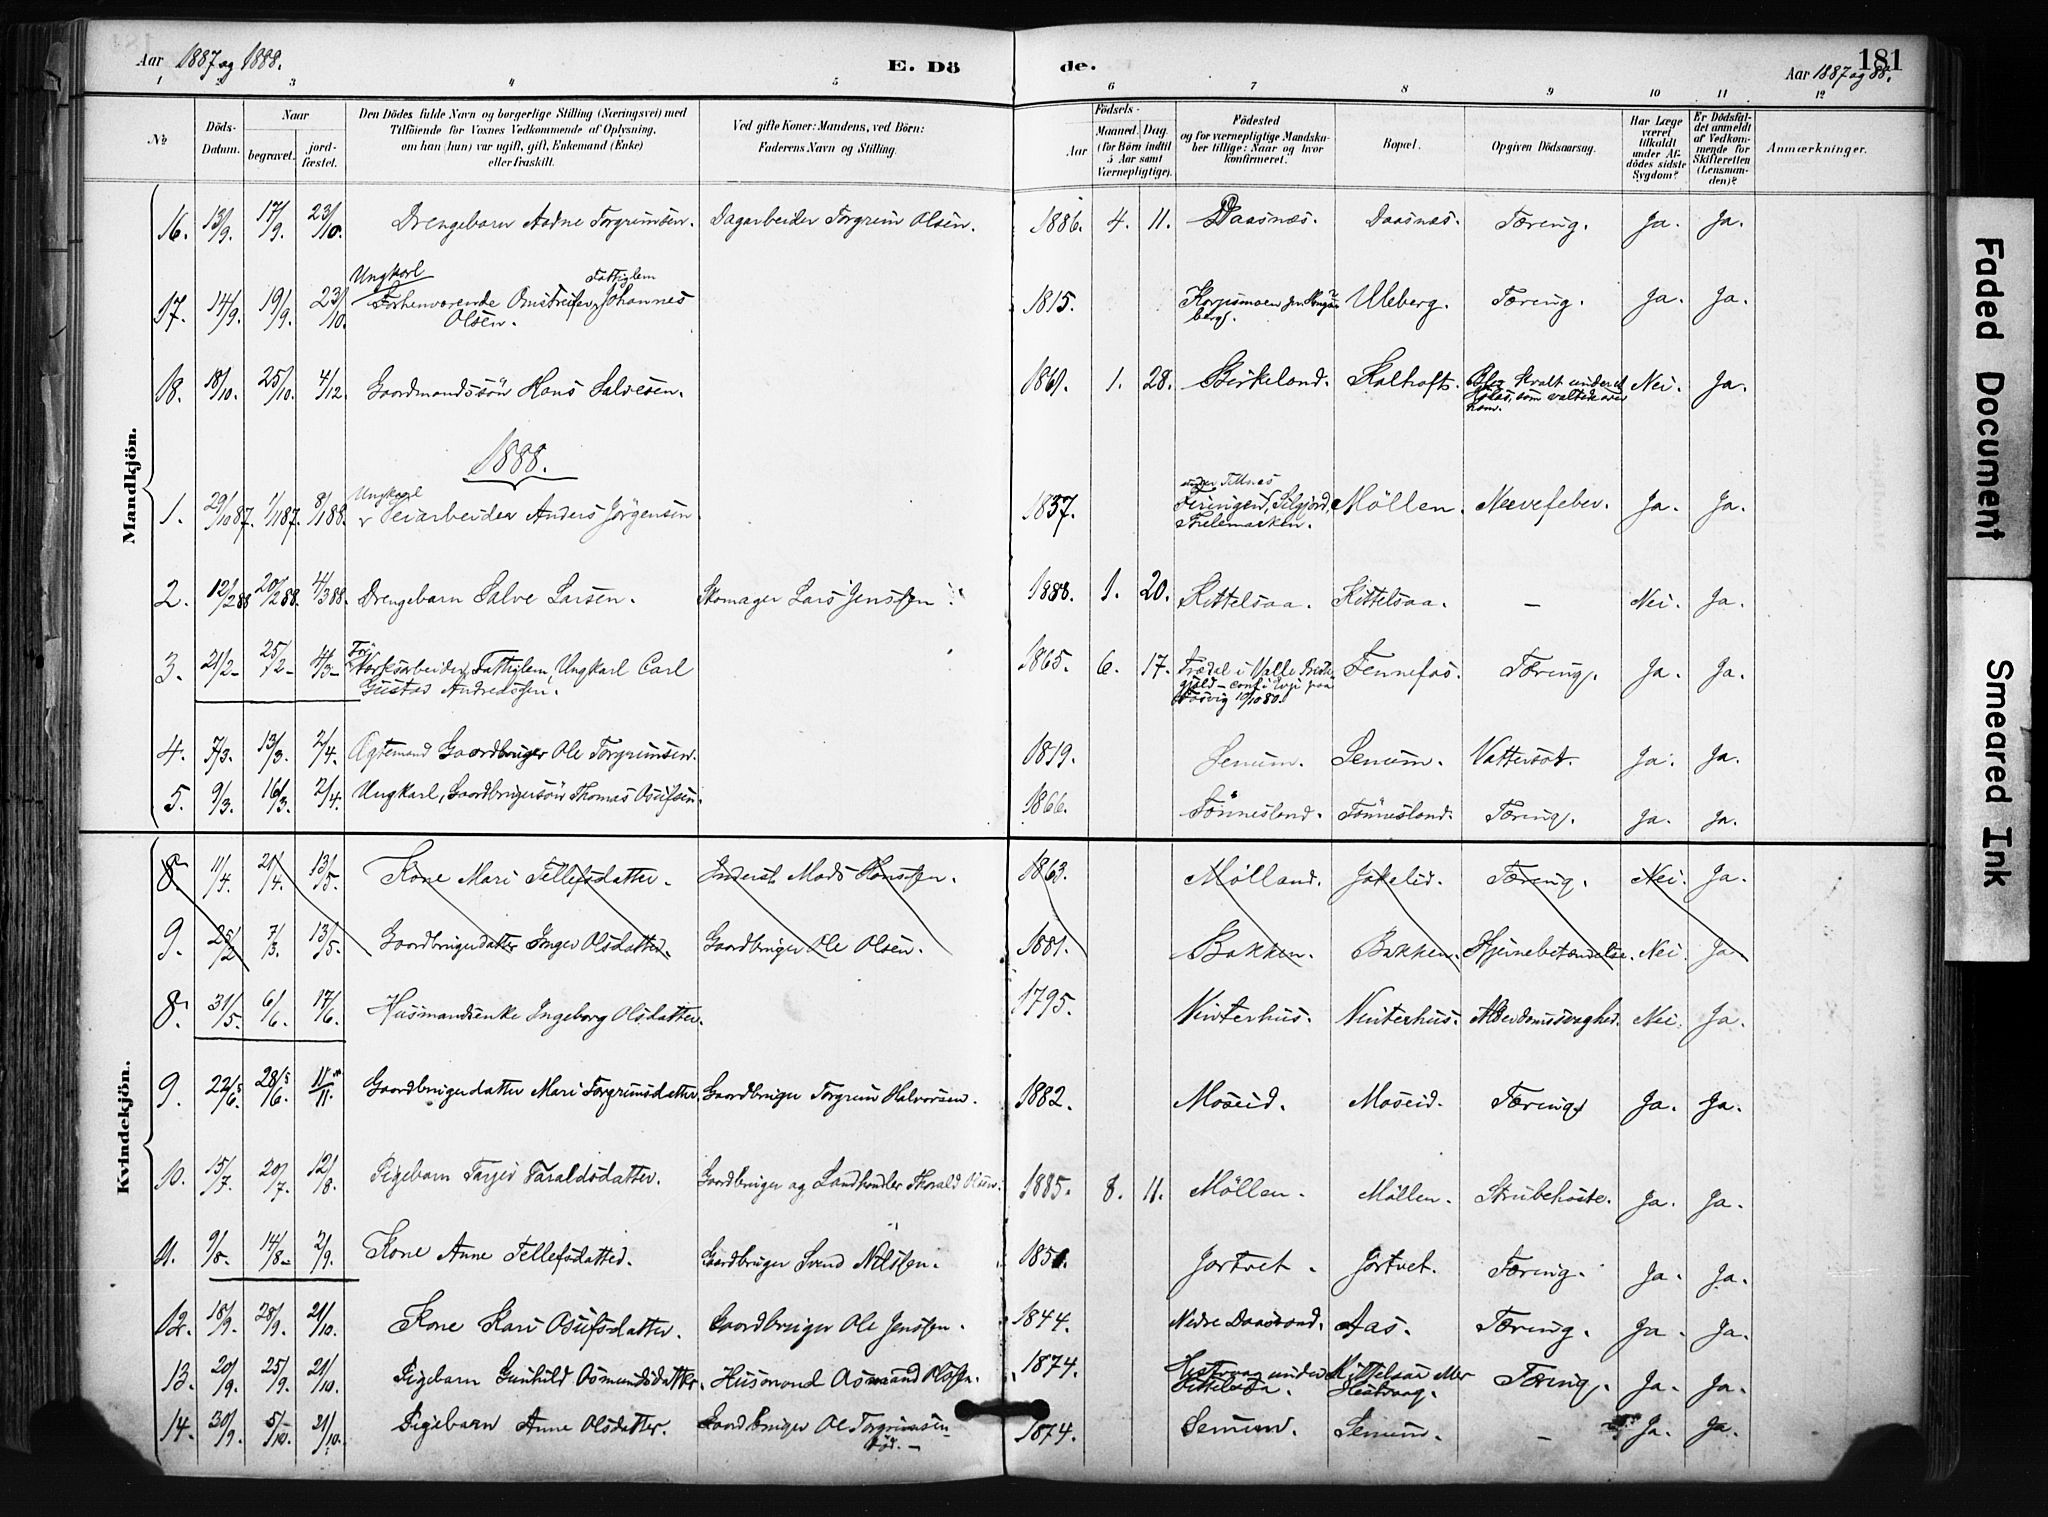 Aar 1887 og 1888.
E. Dö
de.
181
Aar 1887 og 88.
1 2 3 4 5 6 7 8 9 10 11 12
No
Döds-Datum.
Naar
begravet.
jord-fæstet.
Den Dödes fulde Navn og borgerlige Stilling (Næringsvei) med
Tilföiende for Voxnes Vedkommende af Oplysning,
om han (hun) var ugift, gift, Enkemand (Enke)
eller fraskilt.
Ved gifte Koner: Mandens, ved Börn:
Faderens Navn og Stilling.
Födsels-
Aar
Maaned. Dag.
(for Börn indtil
5 Aar samt
Værnepligtige).
Födested
og for værnepligtige Mandsku-
ber tillige: Naar og hvor
konfirmeret.
Bopæl.
Opgiven Dödsaarsag.
Har Læge
været
tilkaldt
under Af-
dödes sidste
Sygdom?
Er Dödsfal-
det anmeldt
af Vedkom-
mende for
Skifteretten
(Lensman-
den)?
Anmærkninger.
Mandkjön.
16. 13/9. 17/9. 23/10. Drengebarn Aadne Torgrimsen. Dagarbeider Torgrim Olsen. 1886. 4. 11. Daasnæs. Daasnæs. Tæring. Ja. Ja.
Ungkarl Fattiglem
17. 14/9. 19/9. 23/10. Forhenværende Omstreifer, Johannes 1815. Uleberg. Tæring. Ja. Ja.
Olsen. berg.
18. 18/10. 25/10. 4/12. Gaardmandssön Hans Salvesen. 1861. 1. 28. Birkeland. Kalhoft. Blev kvalt under et Nei. Ja.
Læs, som veltede over
ham.
1888.
Ungkarl under
1. 29/10 87. 1/11 87. 8/1 88. Veiarbeider Anders Jörgensen. 1837. Silgjord, Möllen. Nervefeber. Ja. Ja.
Thelemarken.
2. 12/2 88 20/2 88. 4/3 88. Drengebarn Salve Larsen. Skomager Lars Jenssen. 1888. 1. 20. Kittelsaa. Kittelsaa. – Nei. Ja.
3. 21/2 – 25/2 – 4/3 – Værksarbeider, Fattiglem, Ungkarl Carl 1865. 6. 17. i Valle Præste- Fennefos. Tæring. Ja. Ja.
Gustav Andreassen. gjeld – conf. i Evje paa
10/10 80.
4. 7/3. 13/3. 2/4. Ægtemand Gaardbruger Ole Torgrimsen. 1819. Senum. Senum. Vattersot. Ja. Ja.
5. 9/3. 16/3. 2/4. Ungkarl, Gaardbrugersön Thomas Osufsen. 1866. Tönnesland. Tönnesland. Tæring. Ja. Ja.
Kvindekjön.
8. 11/4. 21/4. 13/5. Kone Mari Tellefsdatter. Inderst Mads Hanssen. 1863. Mölland. Jokelid. Tæring. Nei. Ja.
9. 25/2 7/3. 13/5. Gaardbrugerdatter Inger Olsdatter. Gaardbruger Ole Olsen. 1881. Bakken. Bakken. Hjernebetændelse. Nei. Ja
8. 31/5. 6/6. 17/6. Husmandsenke Ingeborg Olsdatter. 1795. Vinterhus. Vinterhus. Alderdomssvaghed. Nei. Ja.
9. 22/6. 28/6. 11/11. Gaardbrugerdatter Mari Torgrimsdatter. Gaardbruger Torgrim Halvorsen. 1882. Moseid. Moseid. Tæring. Ja. Ja.
10. 15/7. 20/7. 12/8. Pigebarn Tarjer Taraldsdatter. Gaardbruger og Landhandler Thorald Olsen. 1885. 8. 11. Möllen. Möllen. Strubehoste. Ja. Ja.
11. 9/8. 14/8 – 2/9. Kone Anne Tellefsdatter. Gaardbruger Svend Nilssen. 1851. Jortvet. Jortvet. Tæring. Ja. Ja.
12. 18/9. 28/9. 21/10. Kone Kari Osufsdatter. Gaardbruger Ole Jenssen. 1844. Nedre Daastrand. Aas. Tæring. Ja. Ja.
13. 20/9. 25/9. 21/10. Pigebarn Gunhild Osmundsdatter. Husmand Osmund Olssen. 1874. under Kittelsaa Tæring. Ja. Ja.
Kittelsaa.
14. 30/9. 5/10. 21/10. Pigebarn Anne Olsdatter. Gaardbruger Ole Torgrimsen 1874. Senum. Senum. – Ja. Ja.
död. –
Faded Document
Smeared Ink